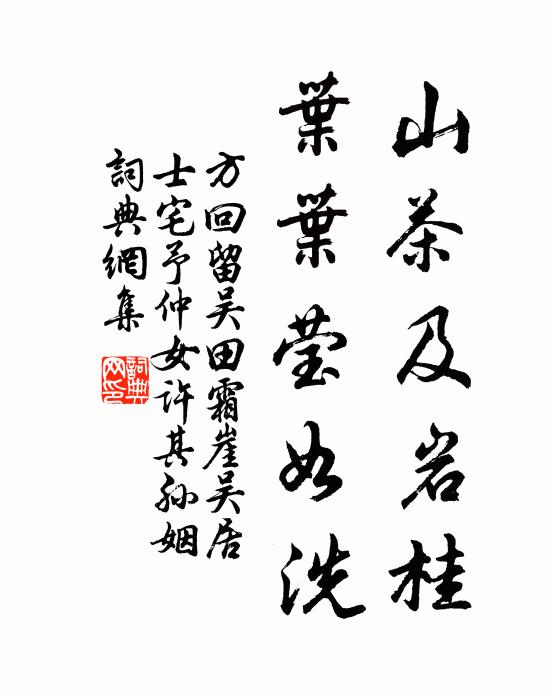 山茶及岩桂
葉葉瑩如洗
方回留吴田霜崖吴居
士宅予仲女許其孙姻
詞典網集
詞典
网印